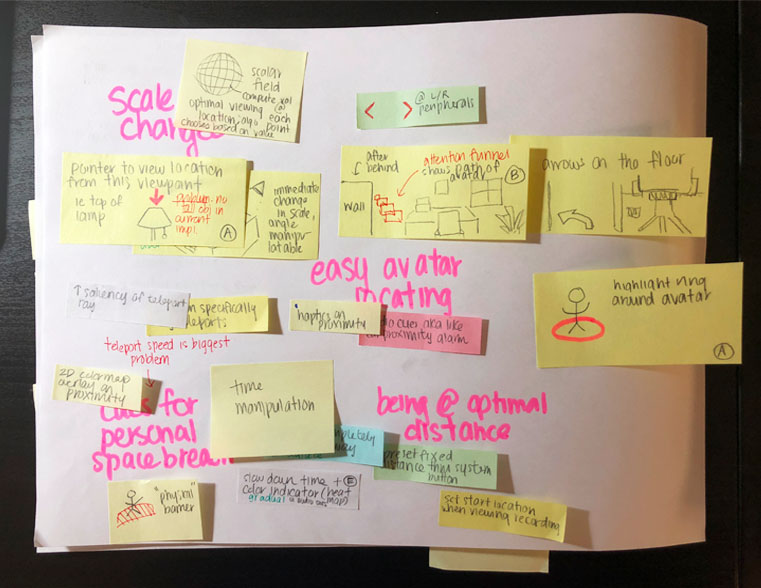 scale
changes
scalar
field
compute val
optimal viewing @
location, algo each
chooses based on value point
< > @ L/R
peripherals
pointer to view location
from this viewpoint
ie top of
lamp
problem: no
obj in
current
impl.
A
immediate
change
in scale,
angle
manip
ulatable
after
behind
wall
attention funnel
shows path of
avatar
B
arrows on the floor
easy avatar
locating
highlight ring
around avatar
A
↑ saliency of teleport
ray
specifically
teleports
haptics on
proximity
cues aka like
proximity alarm
teleport speed is biggest
problem
2D colormap
overlay on
proximity
time
manipulation
cues for
personal
space breach
being @ optimal
distance
completely
preset fixed
distance thru system
button
slow down time + E
color indicator (heat
gradual map)
"physical"
barrier
set start location
when viewing recording